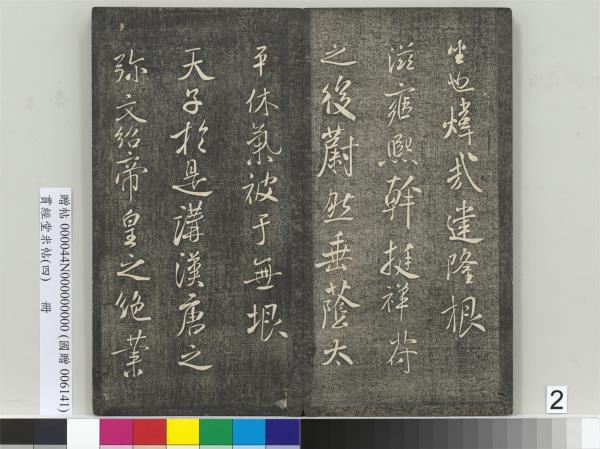 坐也煒哉建隆根
滋雍熙幹挺祥符
之後蔚然垂蔭太
平休氣被于無垠
天子於是講漢唐之
弥文紹帝皇之絶業
贈帖 000044N000000000 (國贈 006141)
貫經堂米帖(四) 冊
2